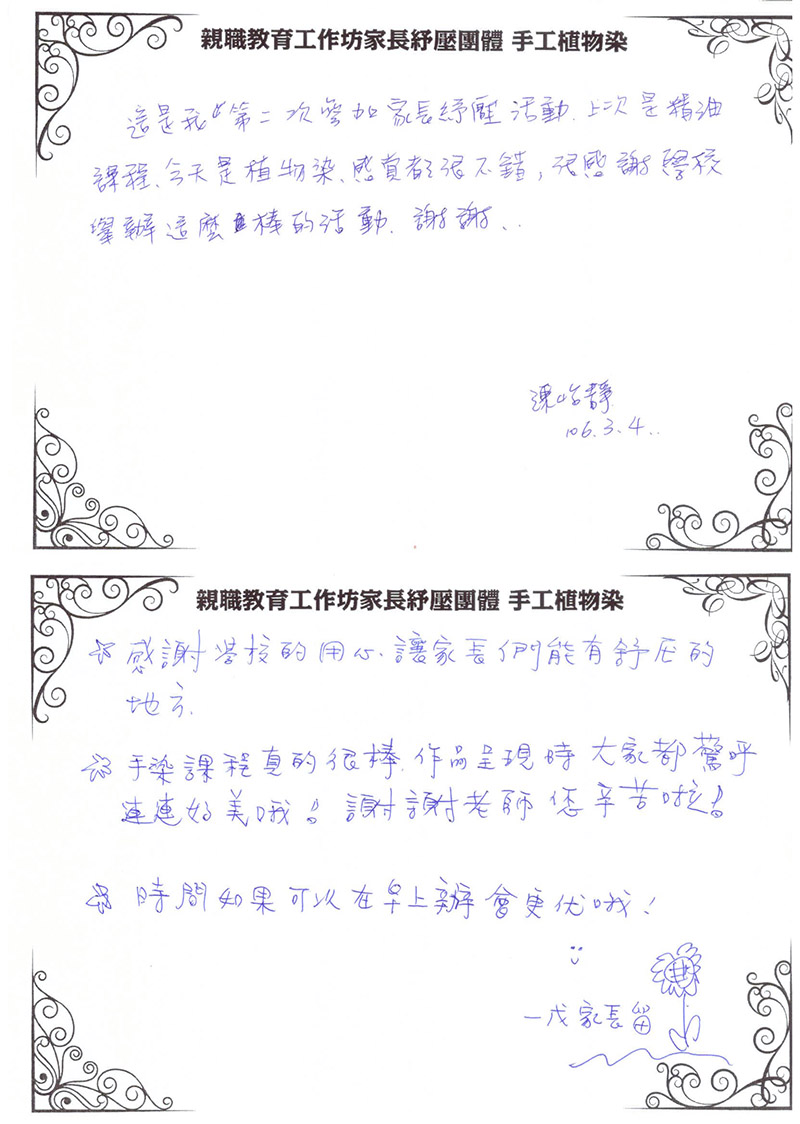 親職教育工作坊家長紓壓團體 手工植物染
這是我第二次參加家長紓壓活動.上次是精油
課程、今天是植物染、感覺都很不錯,很感謝學校
舉辦這麼棒的活動.謝謝..
陳怡靜
106.3.4..
親職教育工作坊家長紓壓團體 手工植物染
☆感謝学校的用心、讓家長們能有舒压的
地方.
☆手染課程真的很棒.作品呈現時大家都驚呼
連連好美哦!謝謝老師您辛苦啦!
☆時間如果可以在早上辦會更优哦!
一戊家長留